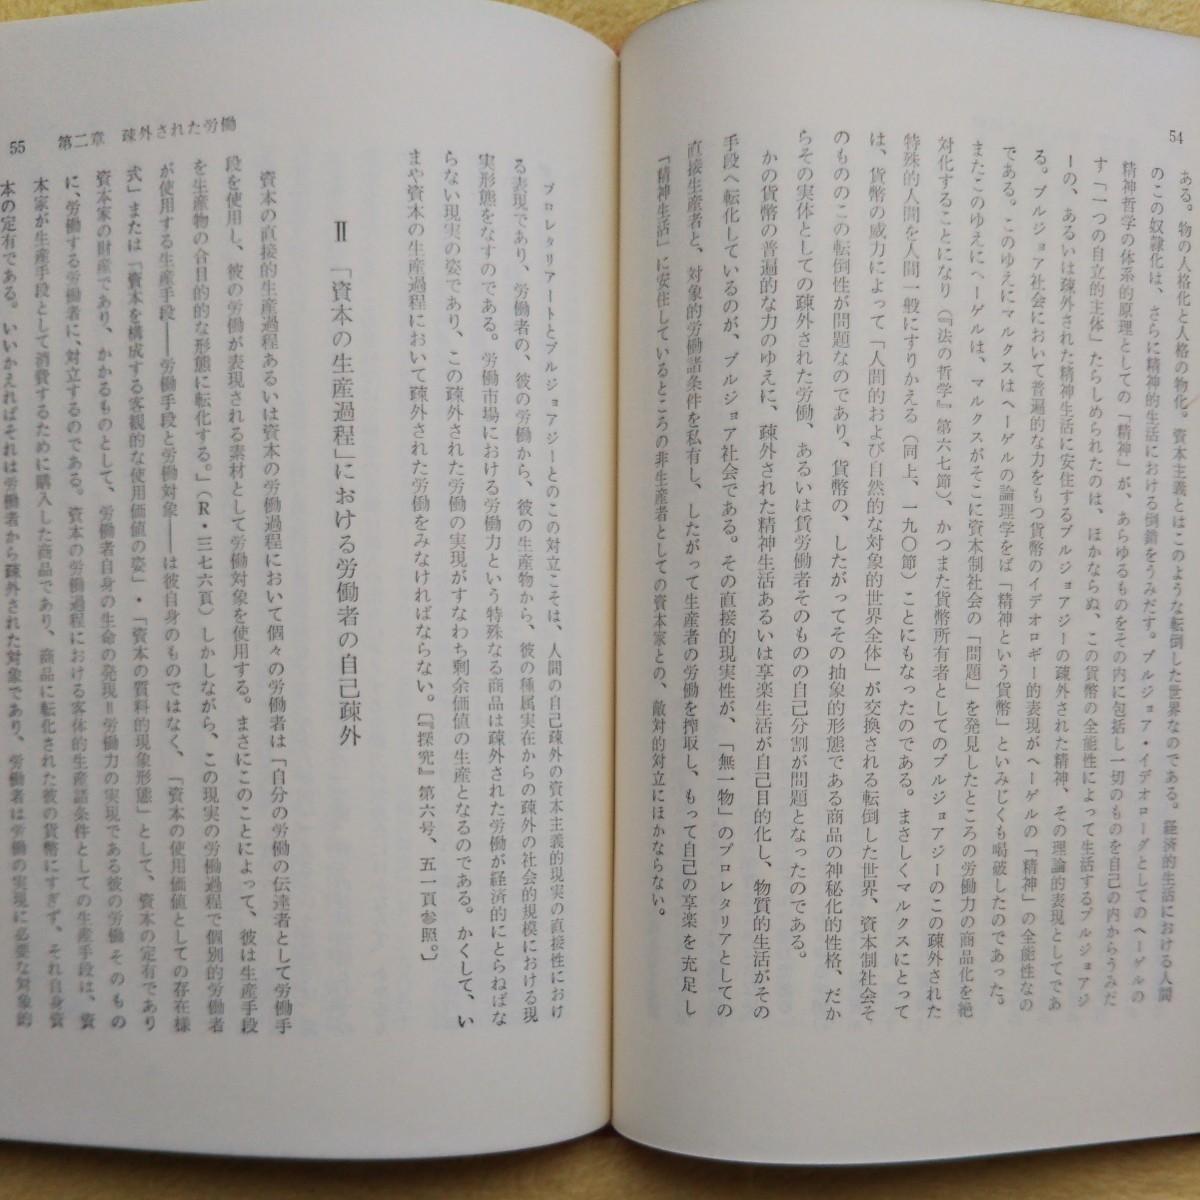 54
ある。物の人格化と人格の物化。資本主義とはこのような転倒した世界なのである。経済的生活における人間
のこの奴隷化は、さらに精神的生活における倒錯をうみだす。ブルジョア・イデオローグとしてのヘーゲルの
精神哲学の体系的原理としての「精神」が、あらゆるものをその内に包括し一切のものを自己の内からうみだ
す「一つの自立的主体」たらしめられたのは、ほかならぬ、この貨幣の全能性によって生活するブルジョアジ
ーの、あるいは疎外された精神生活に安住するブルジョアジーの疎外された精神、その理論的表現としてであ
る。ブルジョア社会において普遍的な力をもつ貨幣のイデオロギー的表現がヘーゲルの「精神」の全能性なの
である。このゆえにマルクスはヘーゲルの論理学をば「精神という貨幣」といみじくも喝破したのであった。
またこのゆえにヘーゲルは、マルクスがそこに資本制社会の「問題」を発見したところの労働力の商品化を絶
対化することになり（『法の哲学』第六七節）、かつまた貨幣所有者としてのブルジョアジーのこの疎外された
特殊的人間を人間一般にすりかえる（同上、一九〇節）ことにもなったのである。まさしくマルクスにとって
は、貨幣の威力によって「人間的および自然的な対象的世界全体」が交換される転倒した世界、資本制社会そ
のもののこの転倒性が問題なのであり、貨幣の、したがってその抽象的形態である商品の神秘化的性格、だか
らその実体としての疎外された労働、あるいは賃労働者そのものの自己分割が問題となったのである。
かの貨幣の普遍的な力のゆえに、疎外された精神生活あるいは享楽生活が自己目的化し、物質的生活がその
手段へ転化しているのが、ブルジョア社会である。その直接的現実性が、「無一物」のプロレタリアとしての
直接生産者と、対象的労働諸条件を私有し、したがって生産者の労働を搾取し、もって自己の享楽を充足し
「精神生活」に安住しているところの非生産者としての資本家との、敵対的対立にほかならない。
55 第二章 疎外された労働
プロレタリアートとブルジョアジーとのこの対立こそは、人間の自己疎外の資本主義的現実の直接性におけ
る表現であり、労働者の、彼の労働から、彼の生産物から、彼の種属実在からの疎外の社会的規模における現
実形態をなすのである。労働市場における労働力という特殊なる商品は疎外された労働が経済的にとらねばな
らない現実の姿であり、この疎外された労働の実現がすなわち剰余価値の生産となるのである。かくして、い
まや資本の生産過程において疎外された労働をみなければならない。〔『探究』第六号、五一頁参照。〕
Ⅱ 「資本の生産過程」における労働者の自己疎外
資本の直接的生産過程あるいは資本の労働過程において個々の労働者は「自分の労働の伝達者として労働手
段を使用し、彼の労働が表現される素材として労働対象を使用する。まさにこのことによって、彼は生産手段
を生産物の合目的的な形態に転化する。」（R・三七六頁）しかしながら、この現実の労働過程で個別的労働者
が使用する生産手段――労働手段と労働対象――は彼自身のものではなく、「資本の使用価値としての存在様
式」または「資本を構成する客観的な使用価値の姿」・「資本の質料的現象形態」として、資本の定有であり
資本家の財産であり、かかるものとして、労働者自身の生命の発現＝労働力の実現である彼の労働そのもの
に、労働する労働者に、対立するのである。資本の労働過程における客体的生産諸条件としての生産手段は、資
本家が生産手段として消費するために購入した商品であり、商品に転化された彼の貨幣にすぎず、それ自身資
本の定有である。いいかえればそれは労働者から疎外された対象であり、労働者は労働の実現に必要な対象的